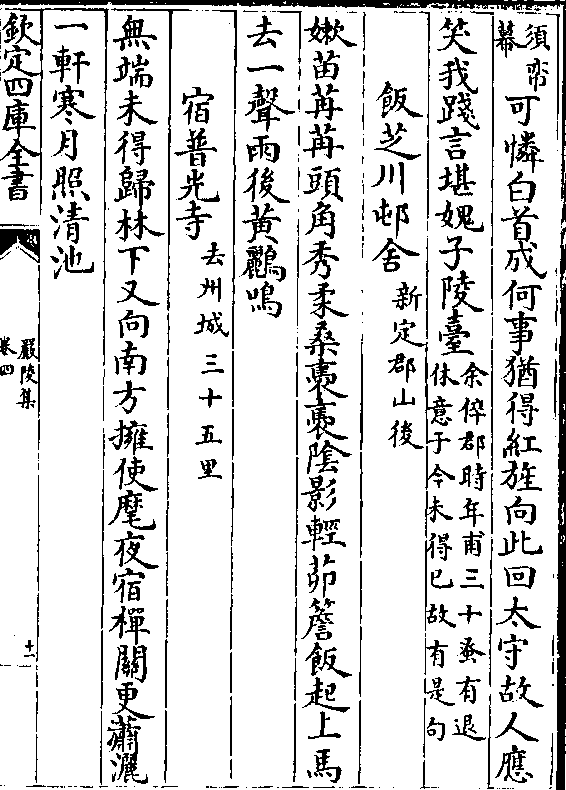 須帝幕可憐白首成何事猶得紅旌向此回太守故人應
笑我踐言堪媿子陵臺余倅郡時年甫三十蚤有退休意于今未得已故有是句
飯芝川邨舍新定郡山後
嫩苗苒苒頭角秀柔桑褭褭陰影輕茆簷飯起上馬
去一聲雨後黃鸝鳴
宿普光寺去州城三十五里
無端未得歸林下又向南方擁使麾夜宿樿關更蕭灑
一軒寒月照清池
欽定四庫全書
嚴陵集
卷四
十二